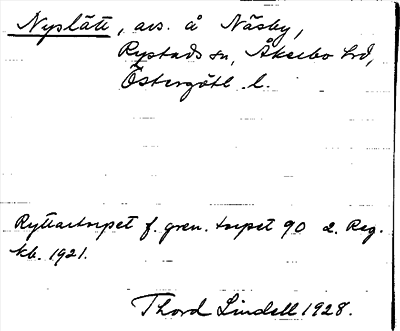 Nyslätt, avs. å Näsby,
Rystads sn, Åkerbo hd,
Östergötl. l.
Ryttartorpet f. gren. torpet 90 2. Reg.
kb. 1921.
Thord Lindell 1928.